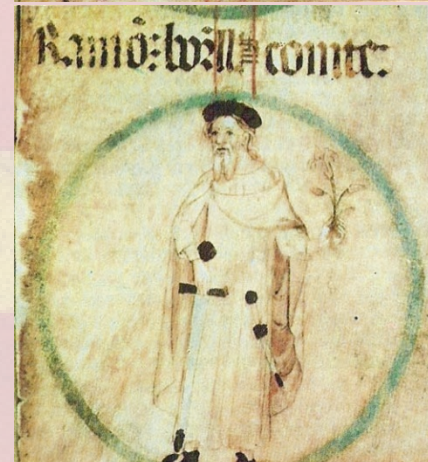 Ramō: borell comite: